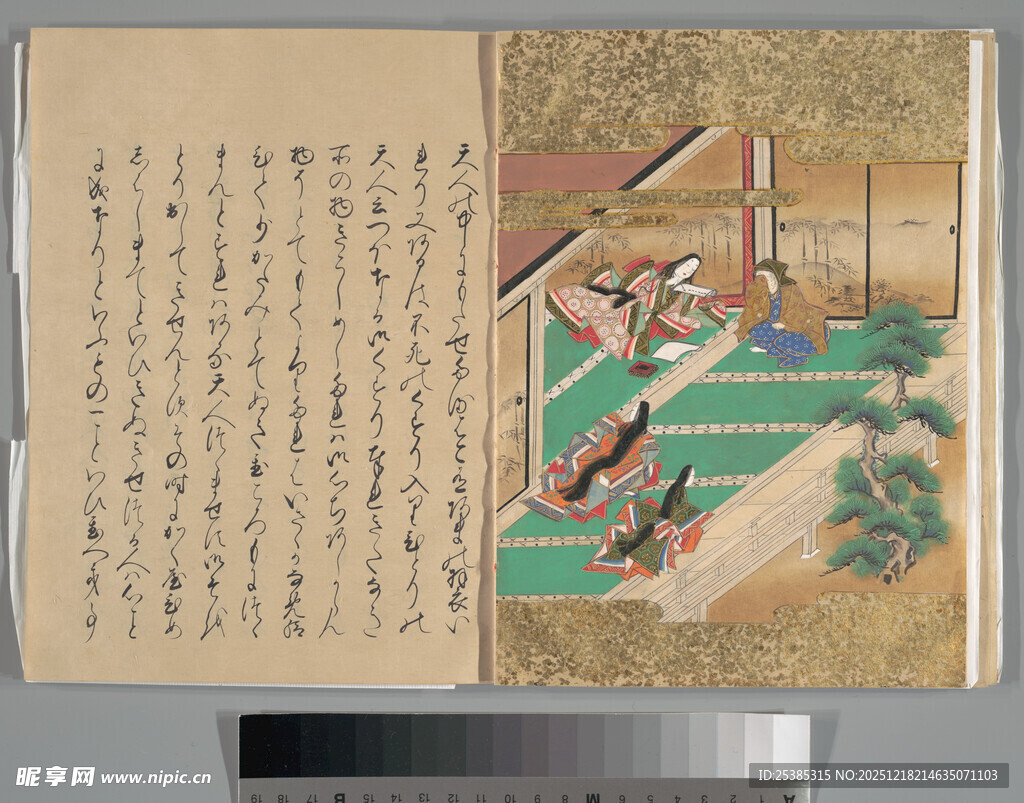 天人の中にもたせたるはこ有あまの羽衣い
れり又あるは不死のくすり入りひとりの
天人云つほなる御くすり奉れきたなき
所の物きこしめしたれは御心ちあしからん
物そとてもてよりたれはいさゝかなめ給
ひて少かたみとてぬきをくころもにつゝ
まんとすれはある天人つゝませす御そを
とり出してきせんとすその時にかくやひめ
しはしまてといひきぬきせつる人は心こと
に成なりといふもの一こといひをくへき事
昵享网 www.nipic.cn
ID:25385315 NO:20251218214635071103
A 1 2 3 4 5 6 M 8 9 10 11 12 13 14 15 B 17 18 19